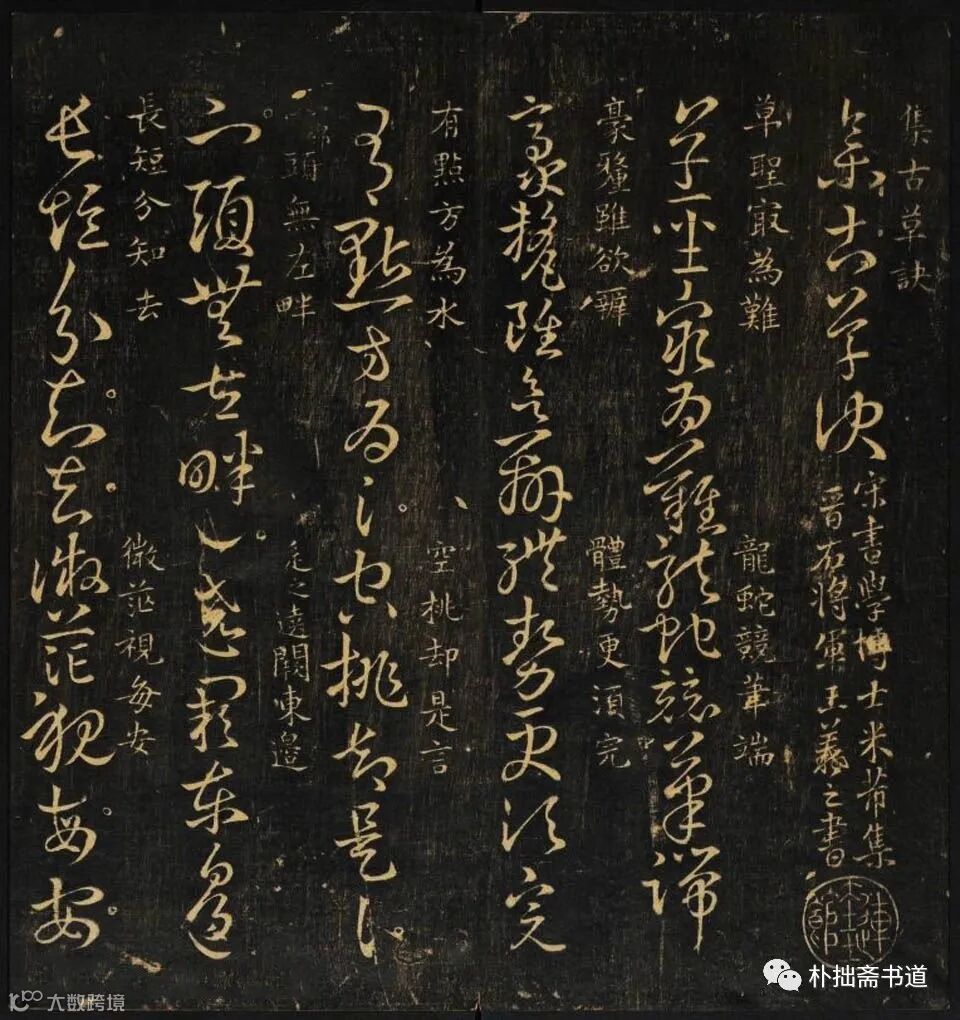 集古草訣
集古草訣
宋書學博士米芾集
晉右將軍王羲之書
草聖㝡為難 龍蛇競筆端
草聖㝡為難龍蛇競筆端
豪釐雖欲辨 體勢更須完
豪釐雖欲辨體勢更須完
有點方為水 空挑却是言
有點方為水空挑却是言
頭無左畔 闕東邊
頭無左畔 闕東邊
長短分知去 微茫視每安
長短分知去微茫視每安
朴拙斋书道
大数跨境